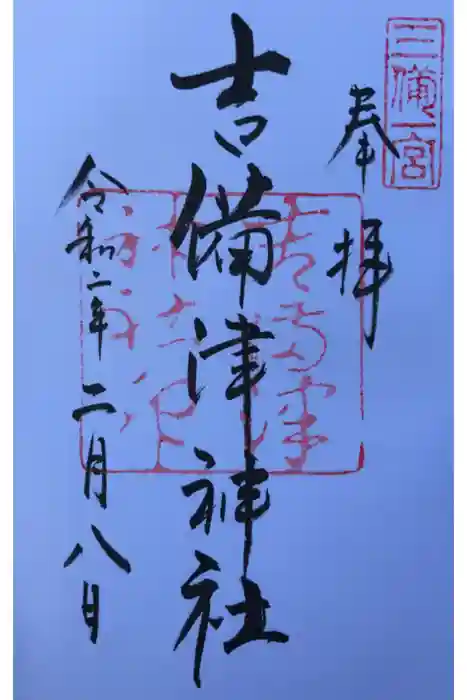 三備一宮
奉拝
吉備津神社
令和二年二月八日